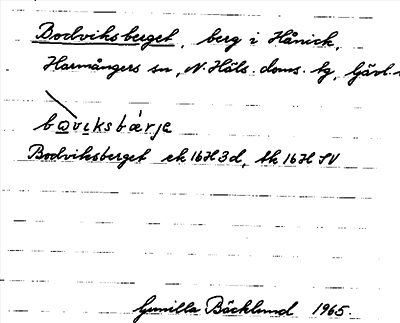 Bodviksberget, berg i Hånick,
Harmångers sn, N. Häls. doms. tg, Gävl.
bωviksbærje
Bodviksberget ek 16H3d, tk 16H SV
Gunilla Bäcklund 1965.